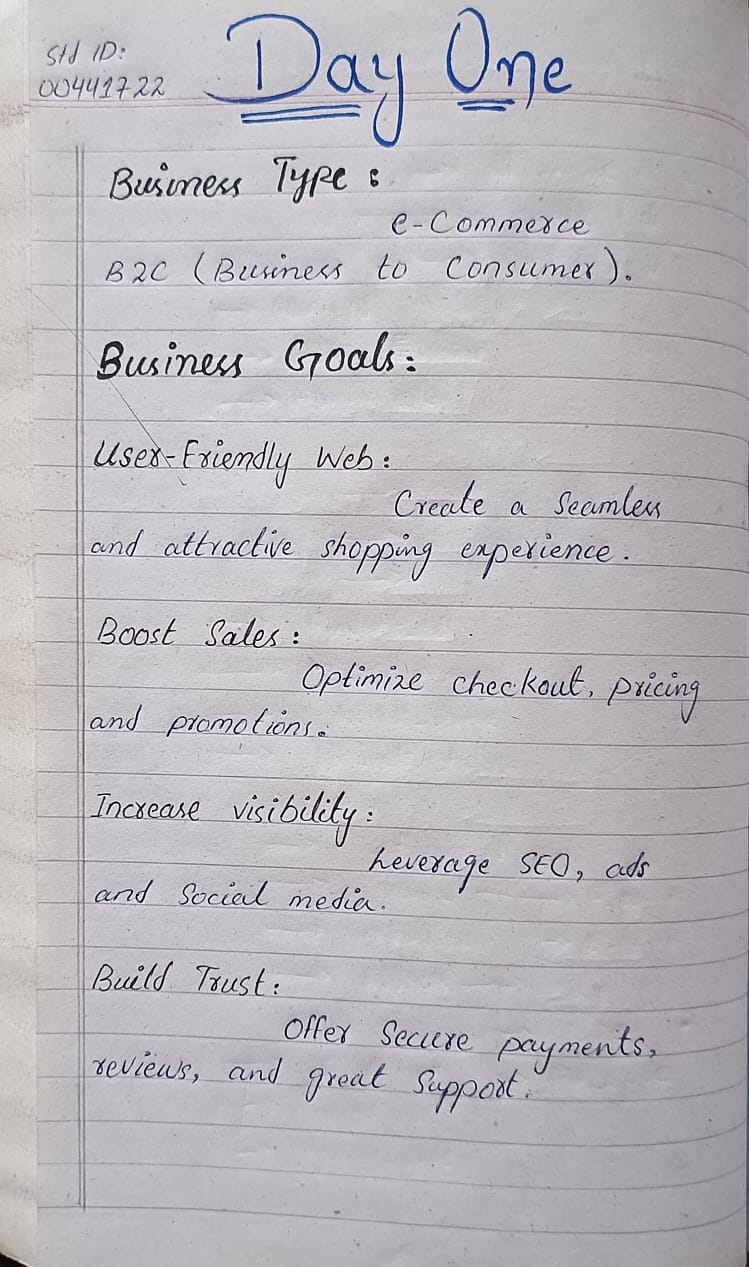 Std ID:
00441722
Day One
Business Type:
e-Commerce
B2C (Business to Consumer).
Business Goals:
User-Friendly Web:
Create a Seamless
and attractive shopping experience.
Boost Sales:
Optimize checkout, pricing
and promotions.
Increase visibility:
Leverage SEO, ads
and Social media.
Build Trust:
Offer Secure payments,
reviews, and great Support.